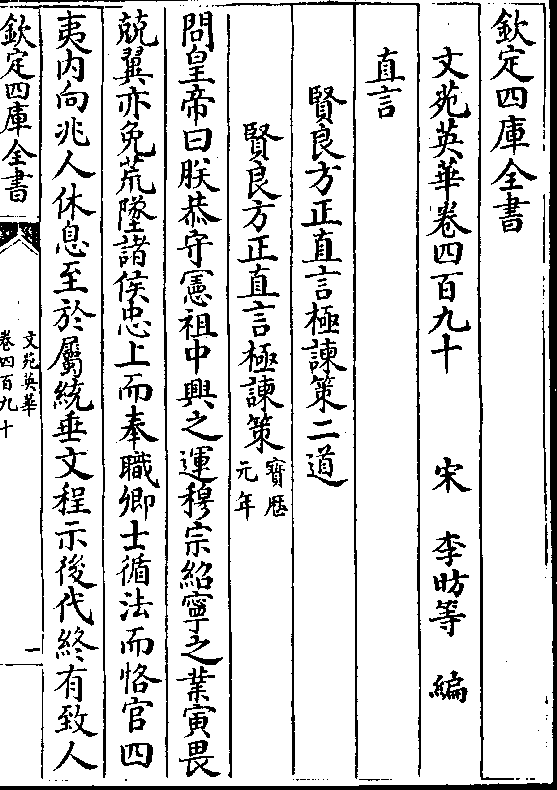 欽定四庫全書
文苑英華卷四百九十　宋　李昉等　編
直言
賢良方正直言極諫策二道
賢良方正直言極諫策寶歴元年
問皇帝曰朕恭守憲祖中興之運穆宗紹寧之業寅畏
兢翼亦免荒墜諸侯忠上而奉職卿士循法而恪官四
夷内向兆人休息至於屬統垂文程示後代終有致人
欽定四庫全書
文苑英華
卷四百九十
一